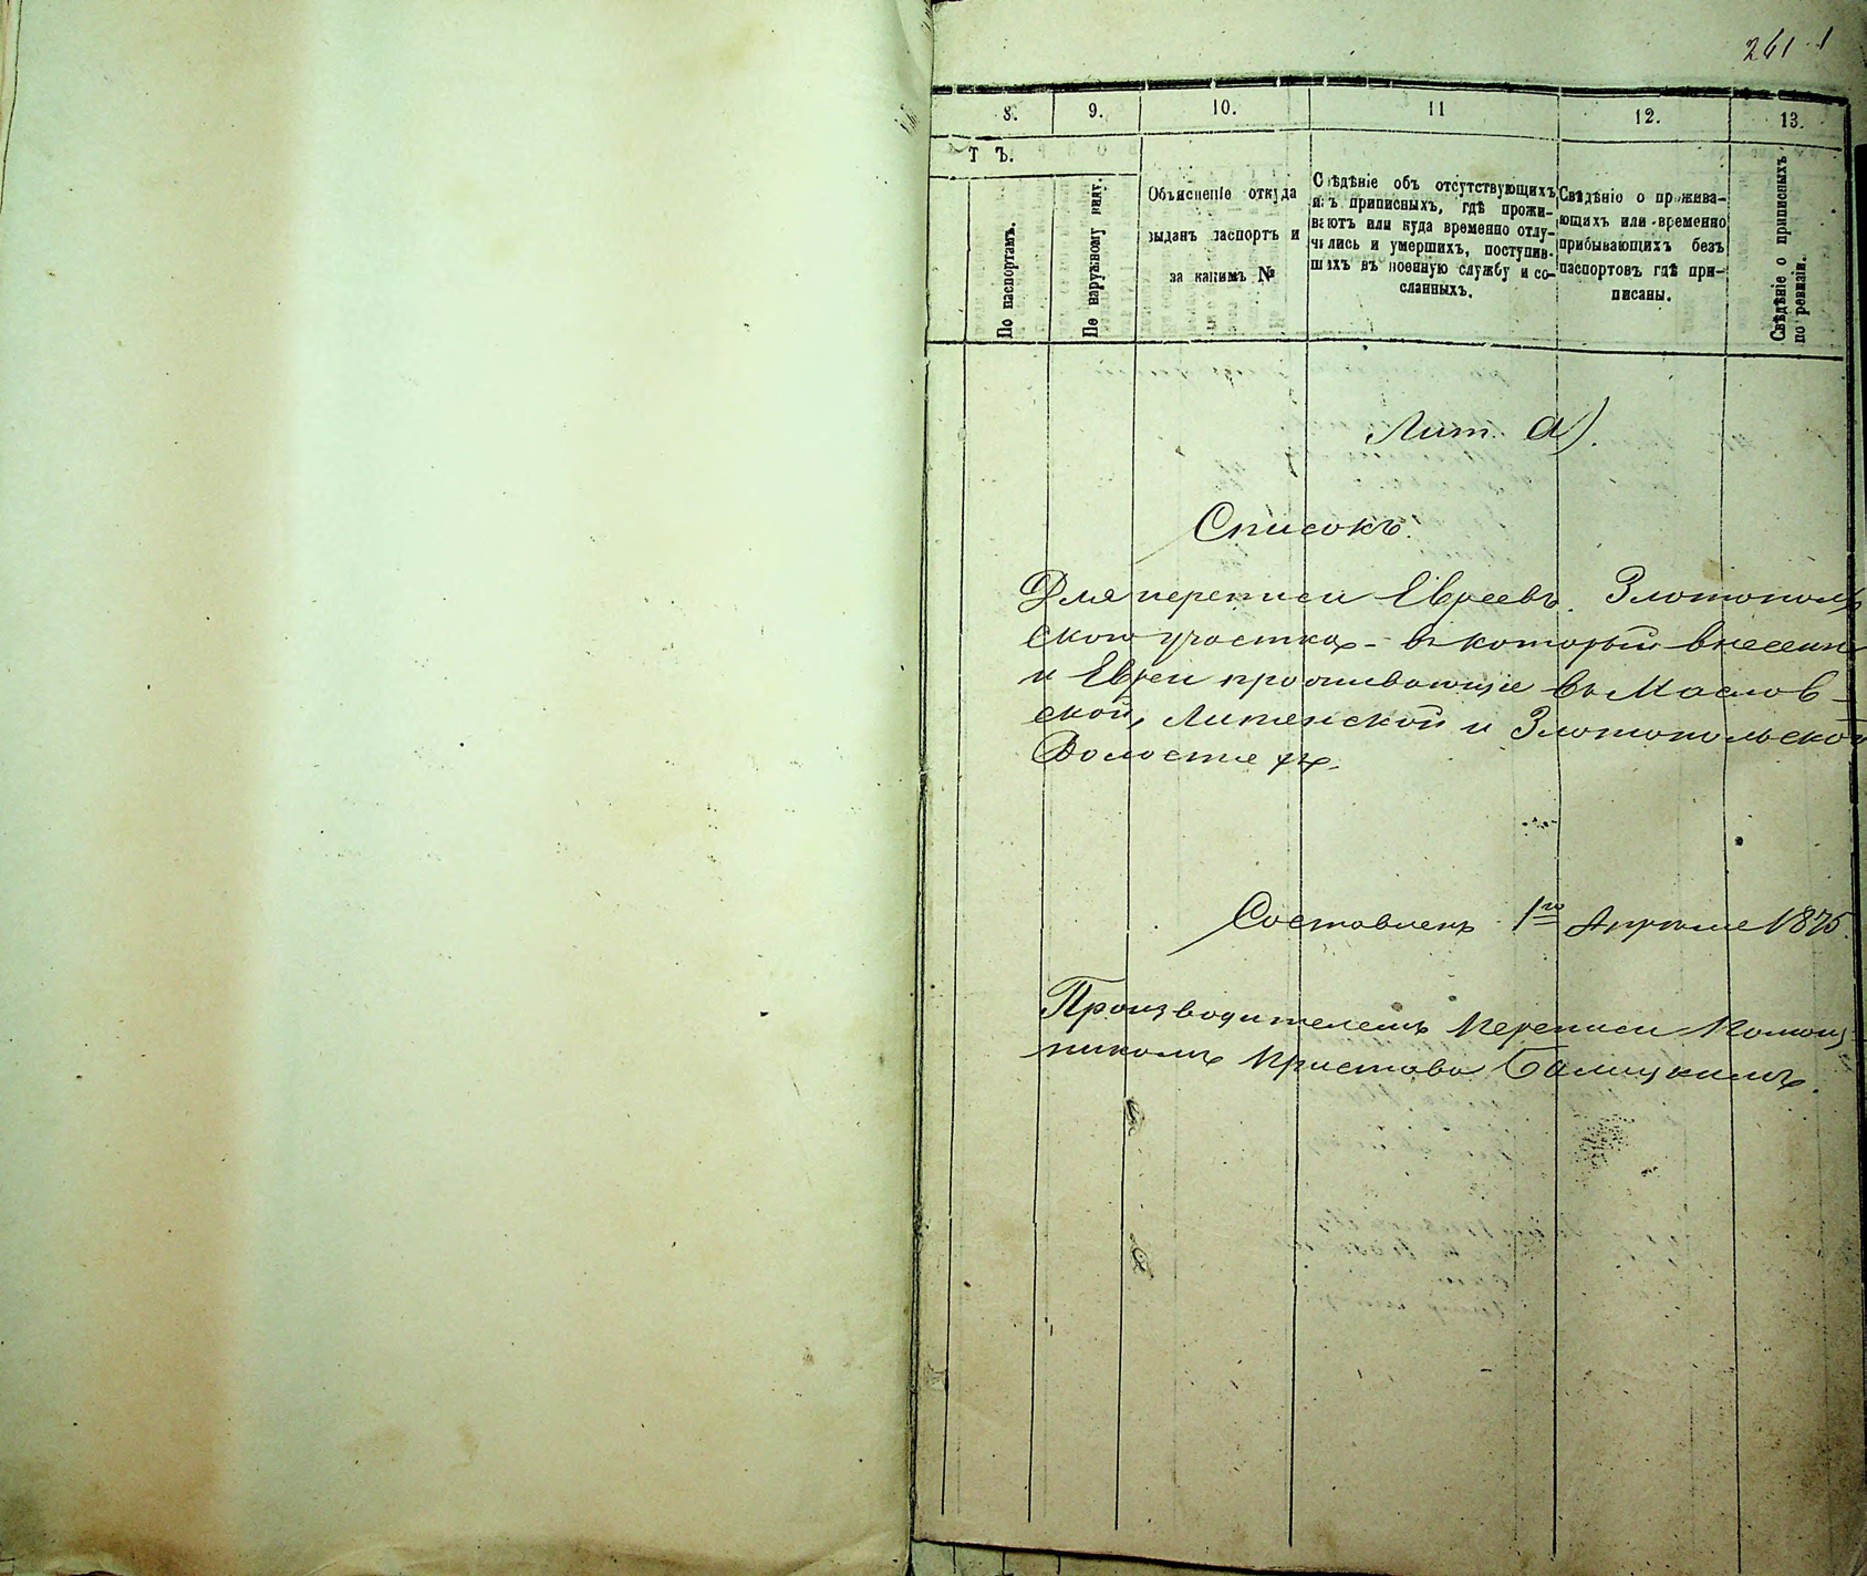 261 1
8. 9. 10. 11 12. 13.
Т Ъ.
По паспортамъ.
По наружному виду.
Объясненіе откуда
выданъ паспортъ и
за какимъ №
Свѣдѣніе объ отсутствующихъ
изъ приписныхъ, гдѣ прожи-
ваютъ или куда временно отлу-
чились и умершихъ, поступив-
шихъ въ военную службу и со-
сланныхъ.
Свѣдѣніе о прожива-
ющихъ или временно
прибывающихъ безъ
паспортовъ гдѣ при-
писаны.
Свѣдѣніе о приписныхъ
по ревизіи.
Лит. а).
Списокъ.
Для переписи Евреевъ. Злотополь
ского участка - въ который внесены
и Евреи проживающіе въ Маслов-
ской, Липянской и Злотопольской
Волостяхъ.
Составленъ 1го Апрѣля 1875.
Производителемъ Переписи Помощ
никомъ Пристава Балицкимъ.